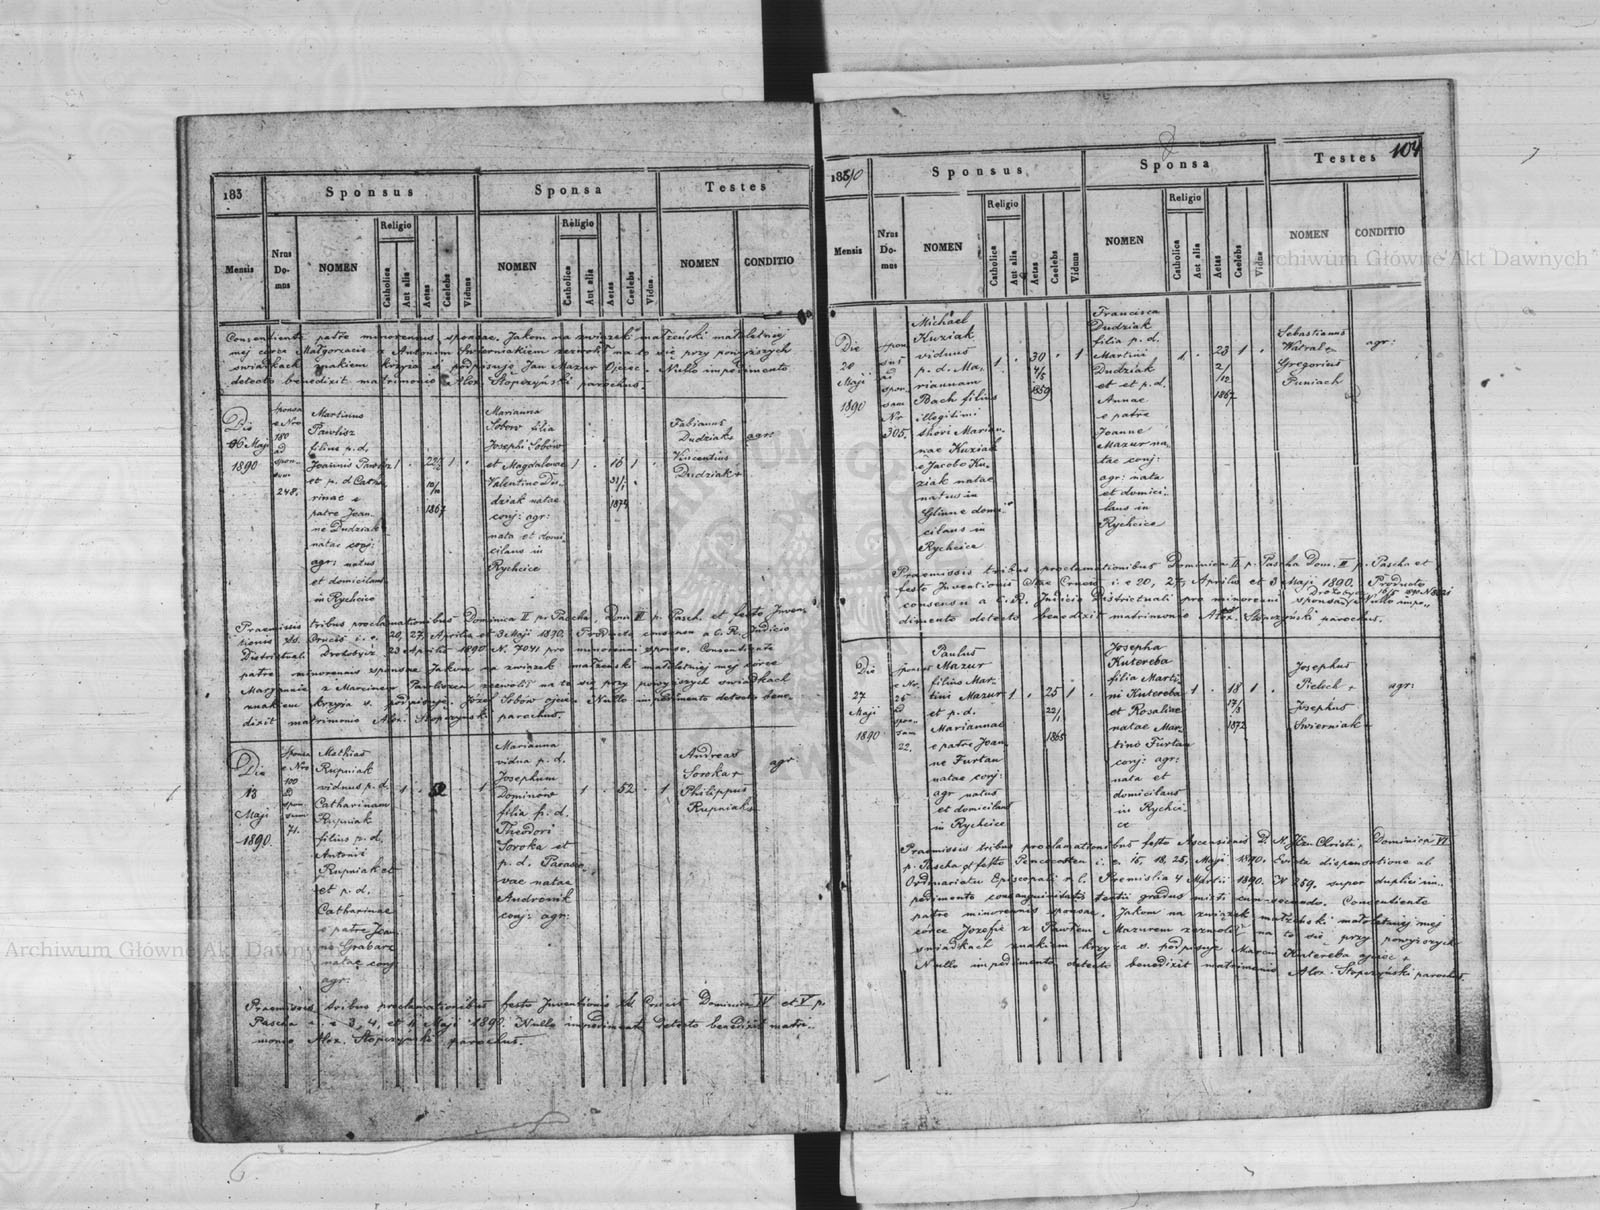 183
Sponsus
Sponsa
Testes
Mensis
Nrus Do-mus
NOMEN
Religio
Catholica
Aut alia
Aetas
Caelebs
Viduus
NOMEN
Religio
Catholica
Aut alia
Aetas
Caelebs
Vidua
NOMEN
CONDITIO
Consentiente patre minorennis sponsae. Jakom na związek małżeński małoletniej
mej córce Małgorzacie z Antonim Swierniakiem zezwolił na to się przy powyższych
świadkach znakiem krzyża s. podpisuję Jan Mazur Ojciec. Nullo impedimento
detecto benedixit matrimonio Alex. Stopczyński parochus.
Die
Maji
1890
Sponsa
e Nro
180
ad
spon-
sum
248.
Martinus
Pawlisz
filius p.d.
Joannis Pawlisz
et p. d. Catha-
rinae e
patre Joan-
ne Dudziak
natae conj:
agr: natus
et domicilans
in Rychcice
1 .
10/11
1867
1 .
Marianna
Sobów filia
Josephi Sobów
et Magdalenae
Valentino Du-
dziak natae
conj: agr:
nata et domi-
cilans in
Rychcice
1 . 16 1 .
31/1
1874
Fabianus
Dudziak
Vincentius
Dudziak +
agr:
Praemissis tribus proclamationibus Dominica II p. Pascha, Dom III p. Pasch. et festo Inven-
tionis SS. Crucis i. e. 20, 27, Aprilis et 3 Maji 1890. Producto consensu a C. R. Judicio
Districtuali Drohobycz 23 Aprilis 1890 N. 7041 pro minorenni sponso. Consentiente
patre minorennis sponsae Jakom na związek małżeński małoletniej mej córce
Maryannie z Marcinem Pawliszem zezwolił na to się przy powyższych świadkach
znakiem krzyża s. podpisuję. Józef Sobów ojciec Nullo impedimento detecto bene-
dixit matrimonio Alex. Stopczyński parochus.
Die
13
Maji
1890
Sponsa
e Nro
100
ad
spon-
sum
71.
Mathias
Rupniak
viduus p. d.
Catharinam
Rupniak
filius p. d.
Antonii
Rupniak et
et p. d.
Catharinae
e patre Joan-
ne Grabarz
natae conj
agr:
1 . 52 . 1
Marianna
vidua p. d.
Josephum
Dominow
filia p. d.
Theodori
Soroka et
p. d. Paras-
vae natae
Andronik
conj: agr:
1 . 52 . 1
Andreas
Soroka +
Philippus
Rupniak
agr
Praemissis tribus proclamationibus festo Inventionis Crucis Dominica IV et V p.
Pascha i. e 3, 4, et 11 Maji 1890. Nullo impedimento detecto benedixit matri-
monio Alex. Stopczyński parochus.
104
1890
Sponsus
Sponsa
Testes
Mensis
Nrus Do-mus
NOMEN
Religio
Catholica
Aut alia
Aetas
Caelebs
Viduus
NOMEN
Religio
Catholica
Aut alia
Aetas
Caelebs
Vidua
NOMEN
CONDITIO
Die
20
Maji
1890
spon
sus
ad
spon-
sam
Nr
305.
Michael
Kuziak
viduus
p. d. Ma-
riannam
Bach filius
illegitimi
thori Marian-
nae Kuziak
e Jacobo Ku-
ziak natae
natus in
Glinne domi-
cilans in
Rychcice
1 . 30 . 1
4/5
1859
Francisca
Dudziak
filia p. d.
Martini
Dudziak
et p. d.
Annae
e patre
Joanne
Mazur na-
tae conj:
agr: nata
et domici-
lans in
Rychcice
1 . 23 1 .
2/
12
1867
Sebastianus
Watral
Gregorius
Puniach
agr:
Praemissis tribus proclamationibus Dominica II p. Pascha Dom. III p. Pascha et
festo Inventionis Stae Crucis i. e 20, 27 Aprilis et 3 Maji 1890. Producto
consensu a C. R. Judicio Districtuali pro minorenni sponsa Nullo impe-
dimento detecto benedixit matrimonio Alex. Stopczyński parochus.
Die
27
Maji
1890
Sponsus
e Nr.
26
ad
spon-
sam
22.
Paulus
Mazur
filius Mar-
tini Mazur
et p. d.
Mariannae
e patre Joan-
ne Furtan
natae conj:
agr natus
et domicilans
in Rychcice
1 . 25 1 .
22/1
1865
Josepha
Kutereba
filia Marti-
ni Kutereba
et Rosaliae
natae Mar-
tino Furtan
conj: agr:
nata et
domicilans
in Rychci-
ce
1 . 18 1 .
17/3
1872
Josephus
Pielech +
Josephus
Swierniak +
agr:
Praemissis tribus proclamationibus festo Ascensionis D. N. Jesu Christi, Dominica VI
p. Pascha et festo Pencocosten i. e. 15, 18, 25, Maji 1890. Emta dispensatione ab
Ordinariatu Episcopali r. l. Premislia 4 Martii 1890. N 259. super duplici im-
pedimento consanguinitatis tertii gradus mixti cum secundo. Concentiente
patre minorennis sponsae. Jakom na związek małżeński małoletniej mej
córce Józefie z Pawłem Mazurem zezwolił na to się przy powyższych
świadkach znakiem krzyża s. podpisuję Marcin Kutereba ojciec +
Nullo impedimento detecto benedixit matrimonio Alex. Stopczyński parochus.
Archiwum Główne Akt Dawnych
Archiwum Główne Akt Dawnych